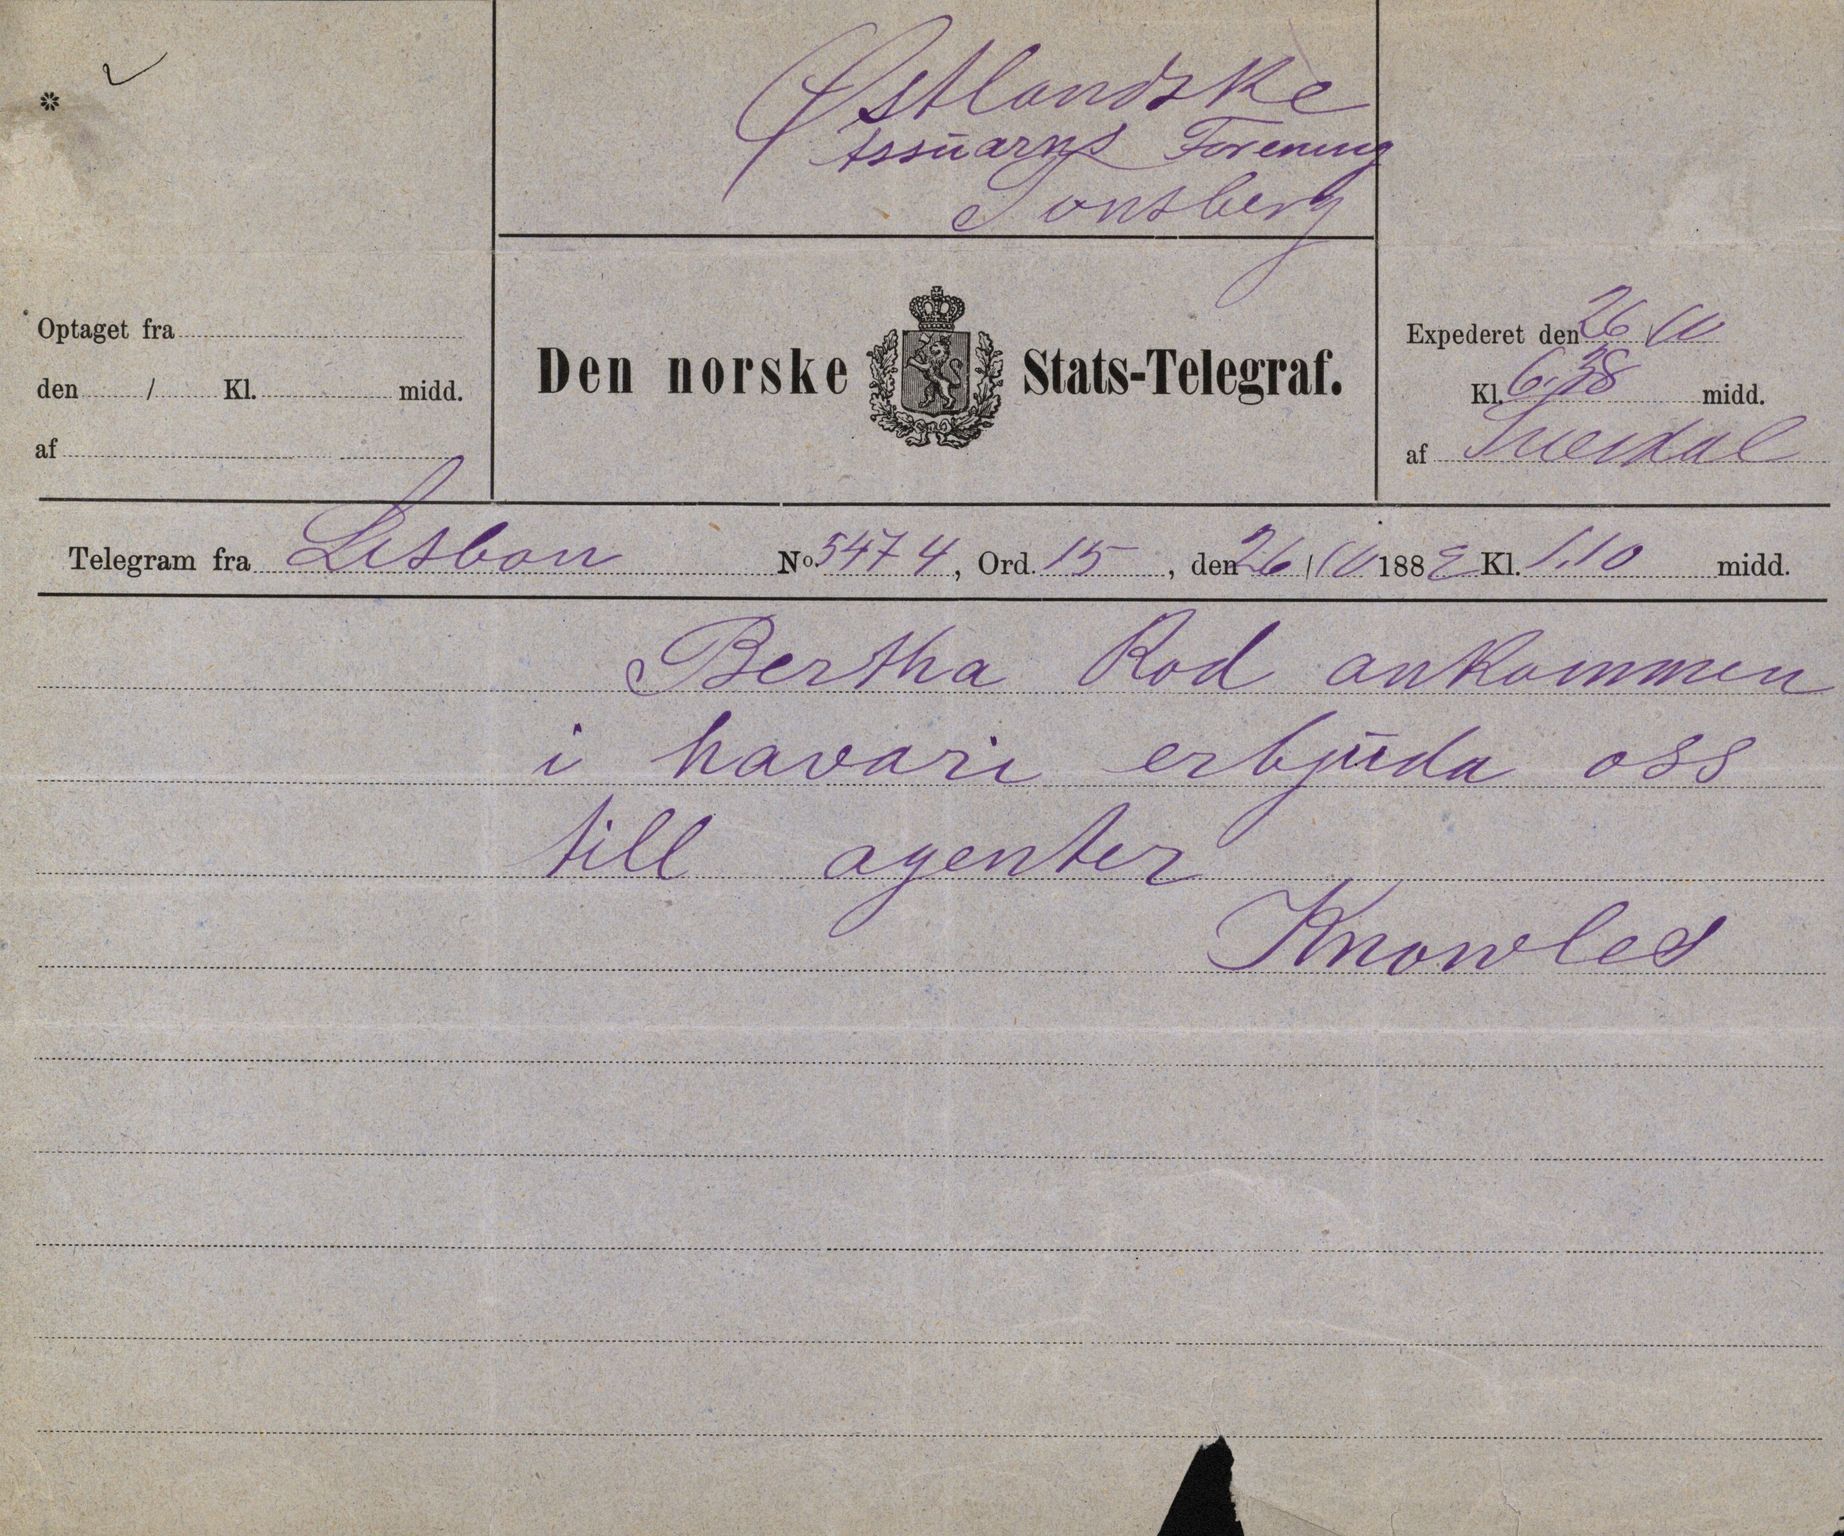 Østlandske
Assuarns Forening
Tønsberg
Optaget fra
den / Kl. midd.
af
Den norske Stats-Telegraf.
Expederet den 26/10
Kl. 6.38 midd.
af
Telegram fra Lisbon No. 5474, Ord. 15, den 26/10 1882 Kl. 1.10 midd.
Bertha Rod ankommen
i havari erbjuda oss
till agenter
Knowles